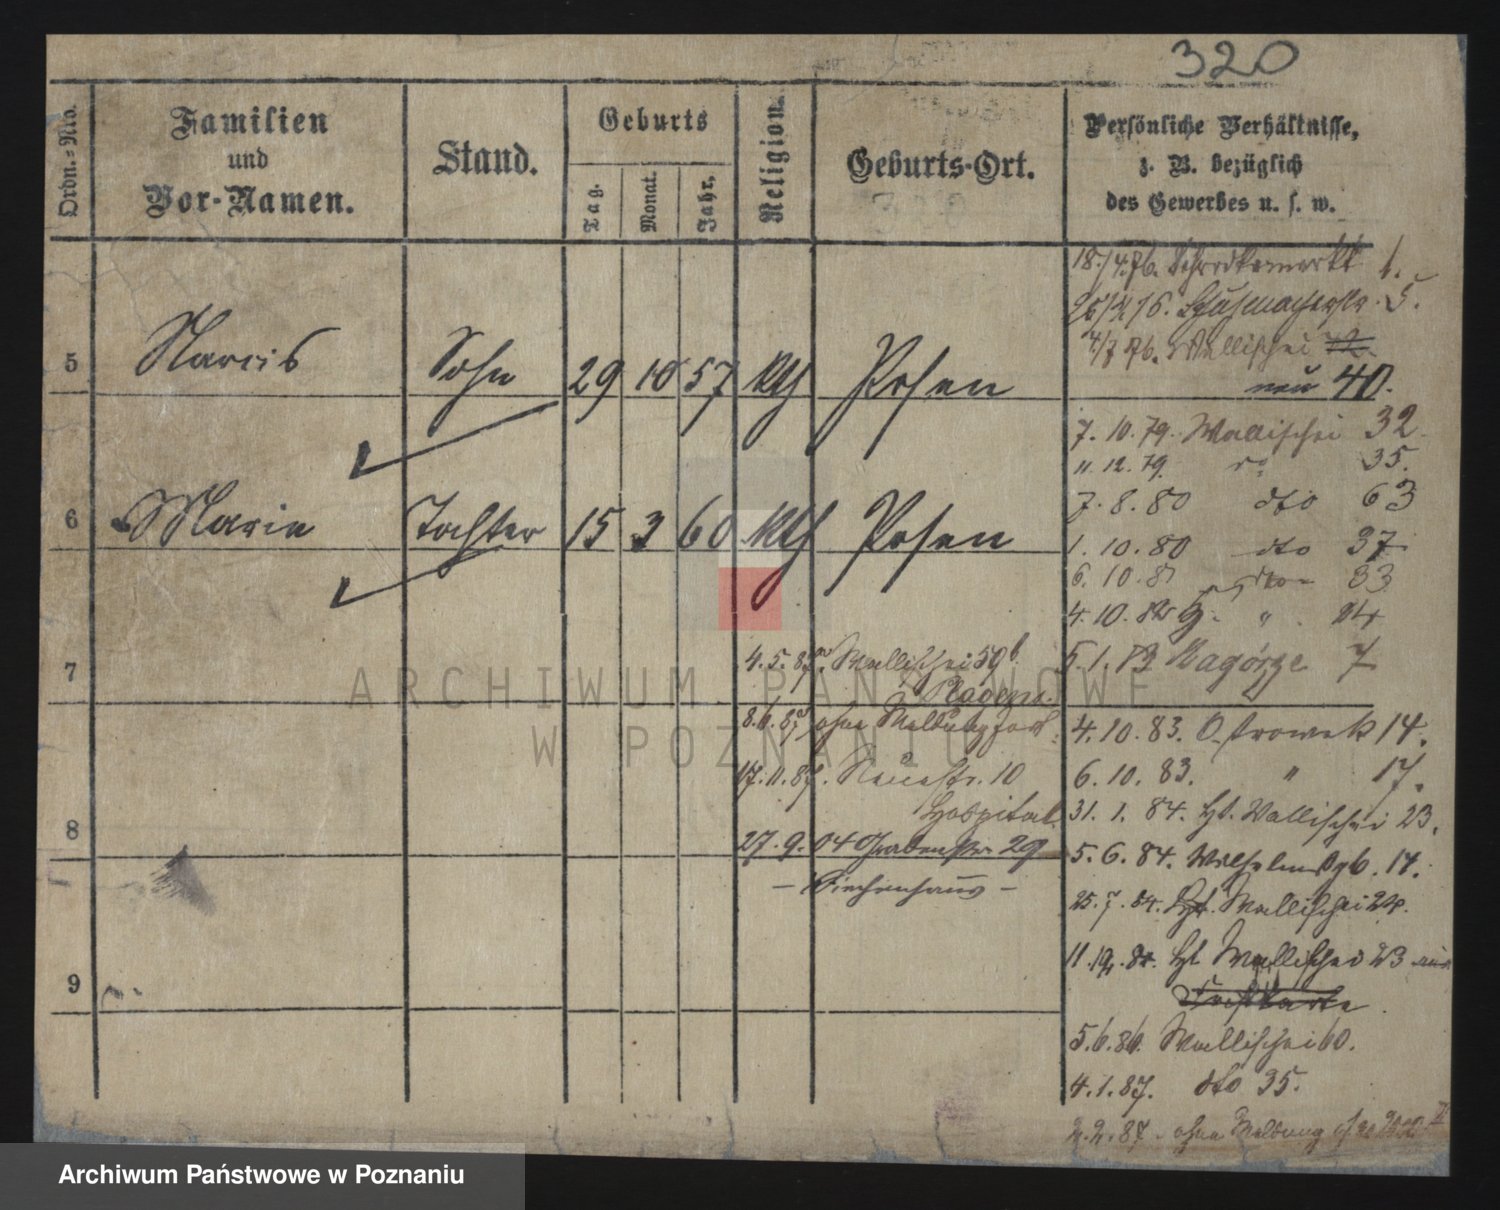 320
Ordn.-Nro.
Familien
und
Vor-Namen.
Stand.
Geburts
Tag.
Monat.
Jahr.
Religion.
Geburts-Ort.
Persönliche Verhältnisse,
z. B. bezüglich
des Gewerbes u. s. w.
5 Narcis Sohn 29 10 57 kth Posen
6 Marie Tochter 15 3 60 kth Posen
7
8
9
18/4.76. Schrodkamarkt 1.
76. 5.
4/7 76. Wallischei
neu 40.
7. 10. 79. Wallischei 32
11. 12. 79. do 35.
7. 8. 80 dto 63
1. 10. 80 dto 37
6. 10. 81 dto 33
4. 10. 82 " 24
5. 1. 83 Zagórze 7
4. 10. 83. Ostrowek 14.
6. 10. 83. " 17.
31. 1. 84. Wallischei 23.
5. 6. 84. Wilhelmstr 17.
25. 7. 84. Wallischei 24.
11. 84. Wallischei 23
5. 6. 86. Wallischei 60.
4. 1. 87. dto 35.
2. 2. 87. ohne Meldung
4. 5. 87 Wallischei 59b
8. 6. 87 ohne Meldung fort
17. 11. 87. Neuestr. 10
Hospital
27. 9. 04 Grabenstr. 29
- Siechenhaus -
ARCHIWUM PAŃSTWOWE
W POZNANIU
Archiwum Państwowe w Poznaniu